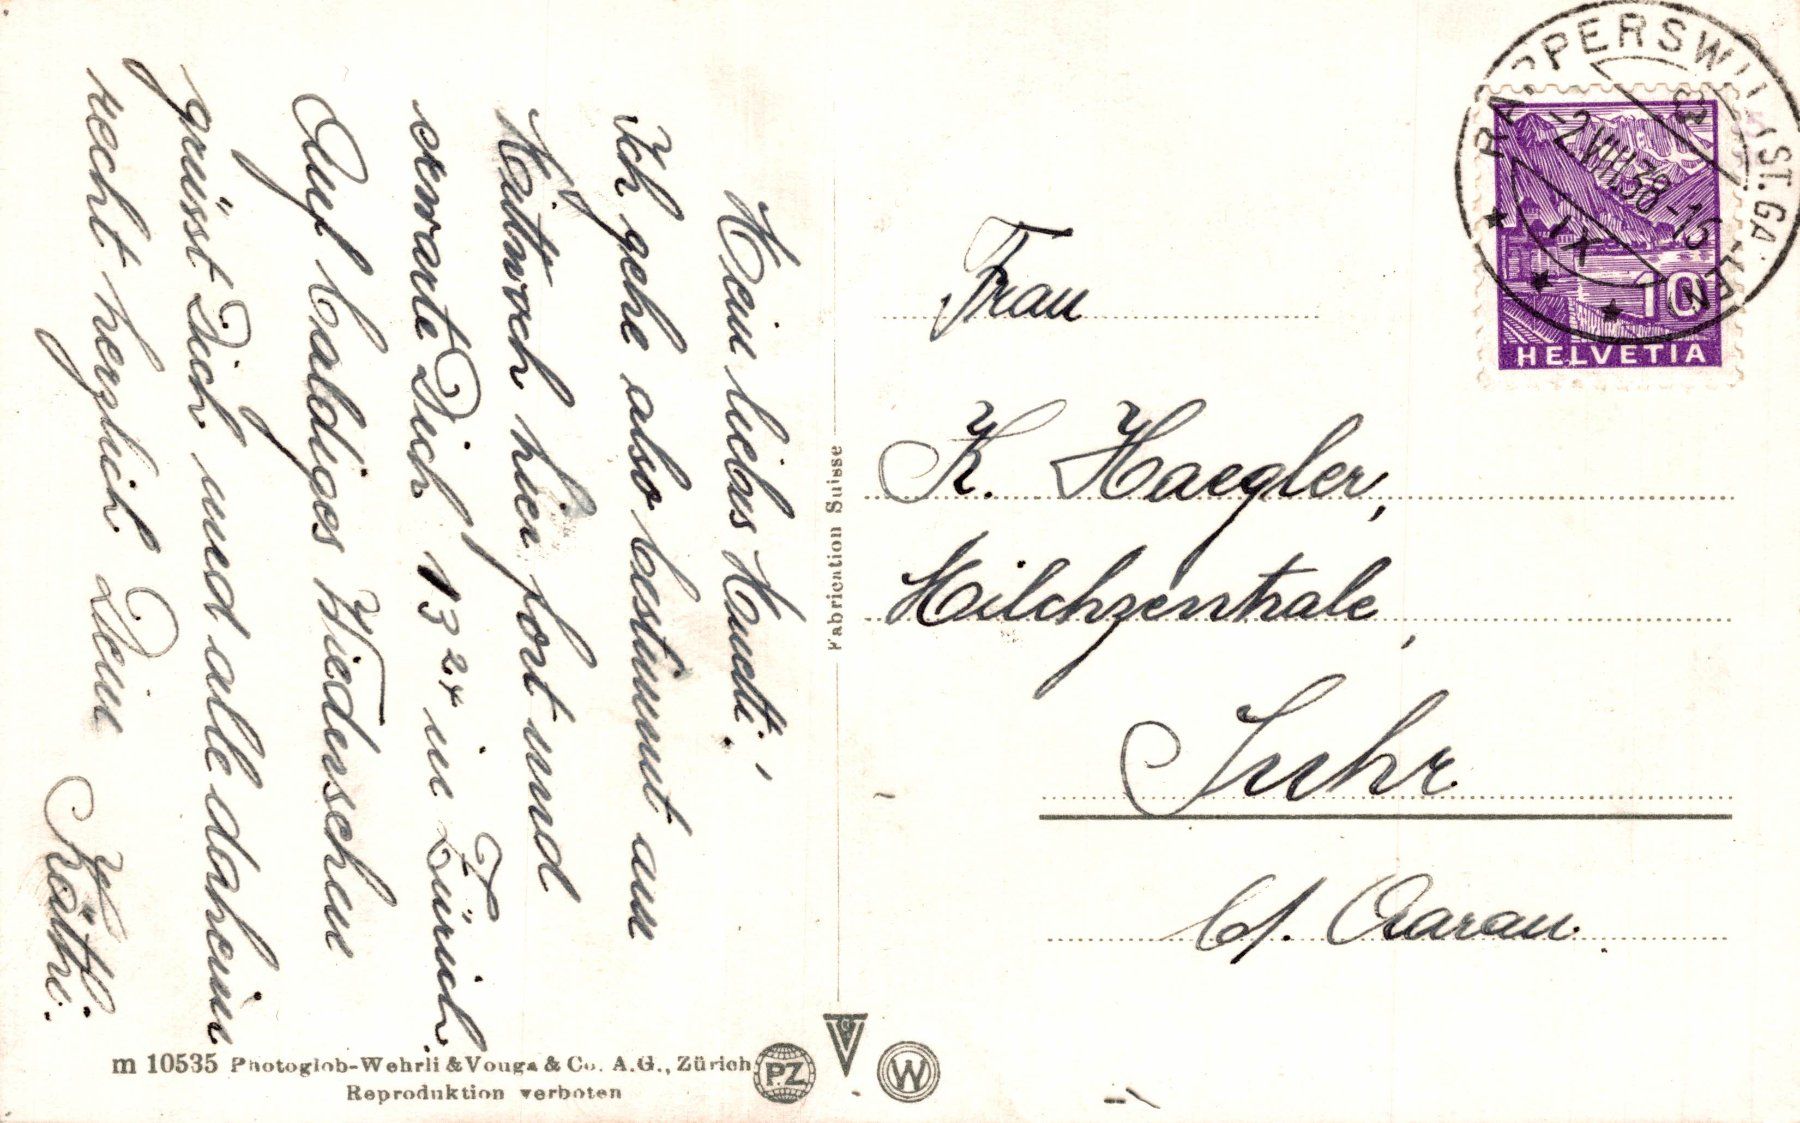 Mein liebes Muetti!
Ich gehe also bestimmt am
Mittwoch hier fort und
erwarte Dich 13 24 in Zürich.
Auf baldiges Wiedersehen
grüsst Dich und alle daheim
recht herzlich Dein
Käthi.
Fabrication Suisse
Frau
K. Haegler,
Milchzentrale,
Suhr
b/. Aarau.
RAPPERSWIL (ST. GALLEN)
-2.VIII.38-15
IX
10
HELVETIA
m 10535 Photoglob-Wehrli & Vouga & Co. A.G., Zürich
Reproduktion verboten
PZ
V
W